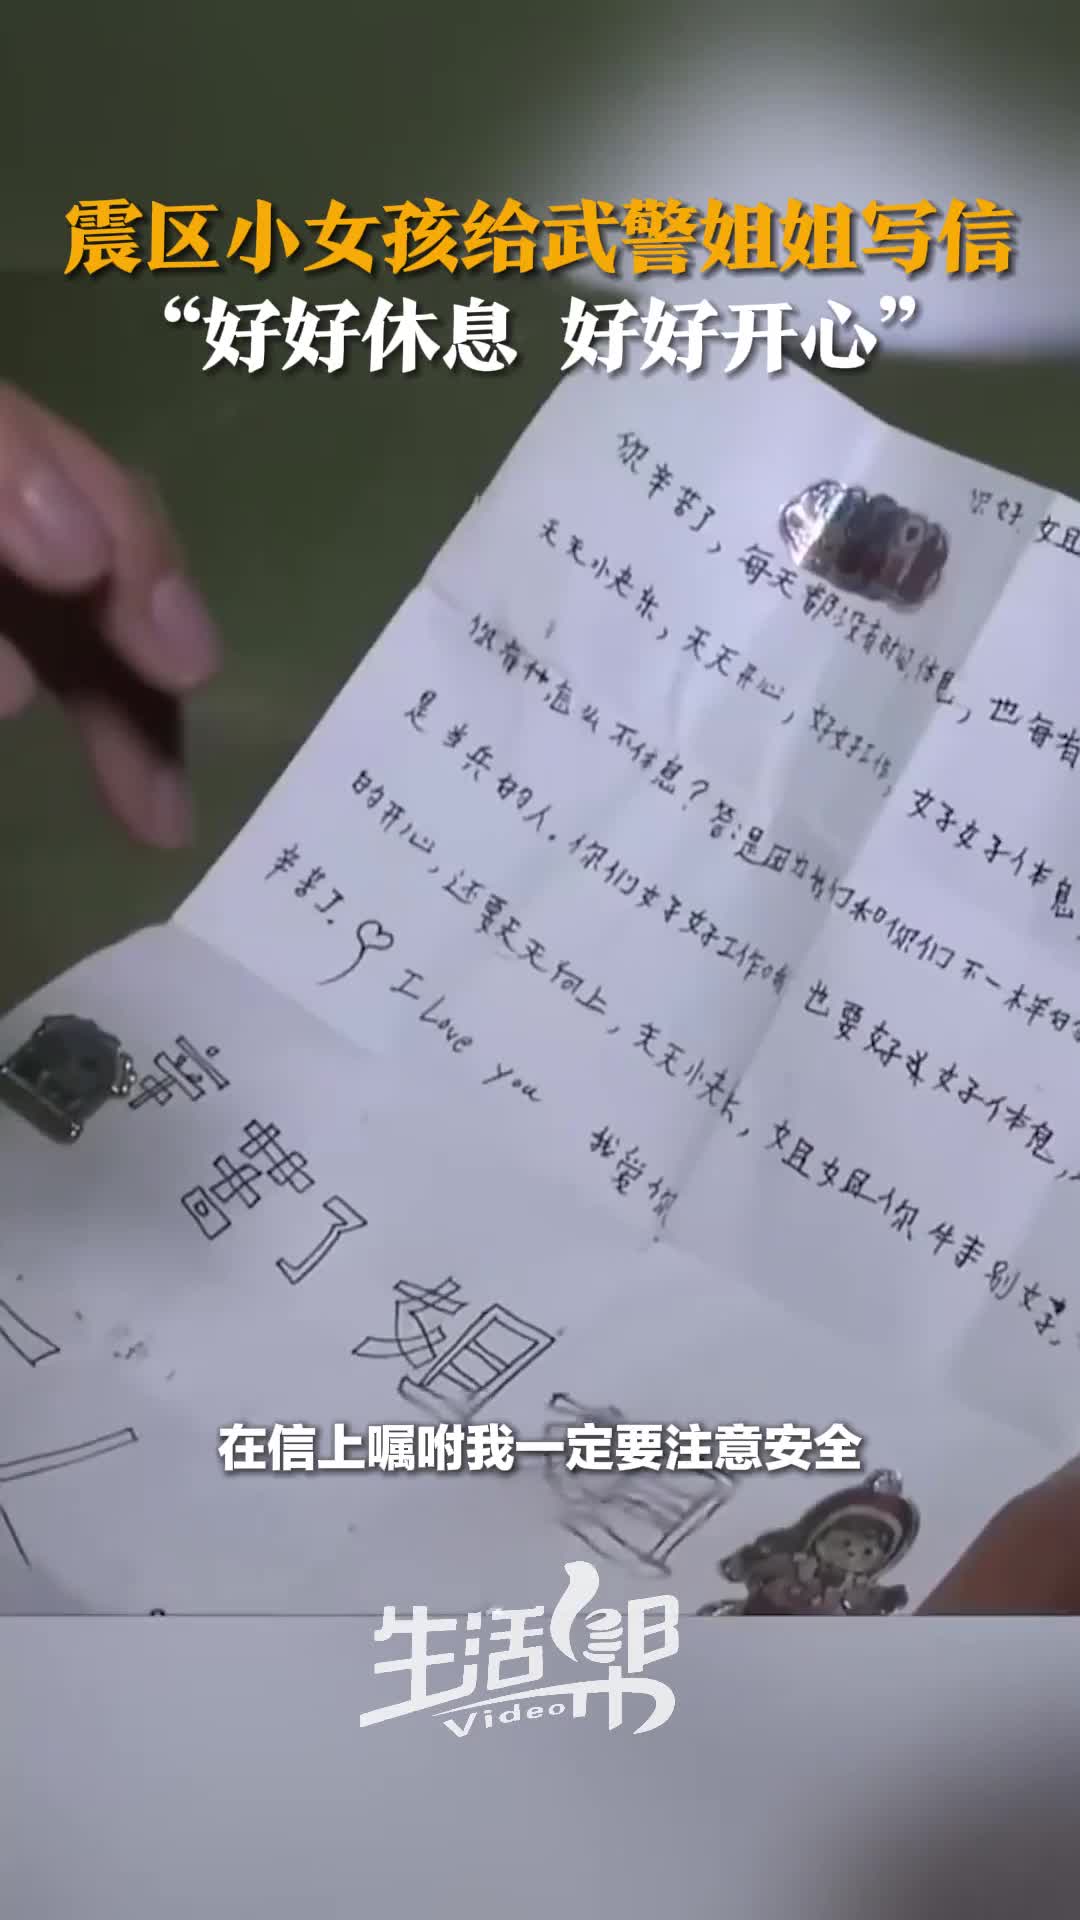 震区小女孩给武警姐姐写信
“好好休息 好好开心”
你好 姐
你辛苦了，每天都没有时间休息，也每有
天天小夹乐，天天开心，好好工作，好好休息，
你有种怎么不休息？答：是因为我们和你们不一样的
是当兵的人。你们好好工作 也要好好休息，
的开心，还要天天向上，天天小夹 姐姐你 别
辛苦了。I Love you 我爱你
辛苦了 姐
在信上嘱咐我一定要注意安全
生活帮
Video